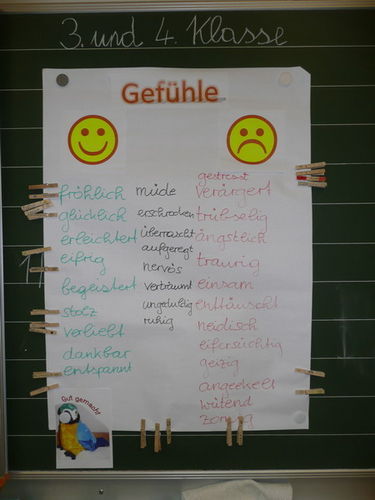 3. und 4. Klasse
Gefühle
fröhlich
glücklich
erleichtert
eifrig
begeistert
stolz
verliebt
dankbar
entspannt
müde
erschrocken
überrascht
aufgeregt
nervös
verträumt
ungeduldig
ruhig
gestresst
verärgert
trübselig
ängstlich
traurig
einsam
enttäuscht
neidisch
eifersüchtig
geizig
angeekelt
wütend
zornig
Gut gemacht